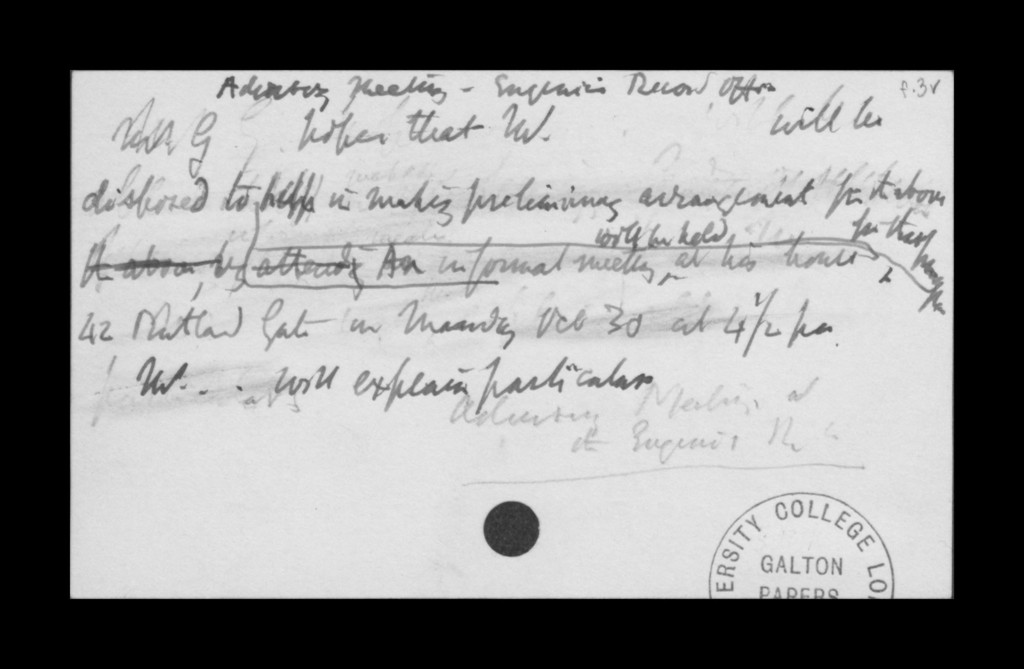 Advisory Meeting - Eugenics Record Office
p.3v
Mr G hopes that Mr. will be
disposed to help in making preliminary arrangement for the above
will be held for that
the above by attending An informal meeting at his house
42 Rutland Gate on Monday Oct 30 at 4 1/2 pm.
Mr. . . will explain particulars
Advisory Meeting of
the Eugenics
ERSITY COLLEGE LO
GALTON
PAPERS